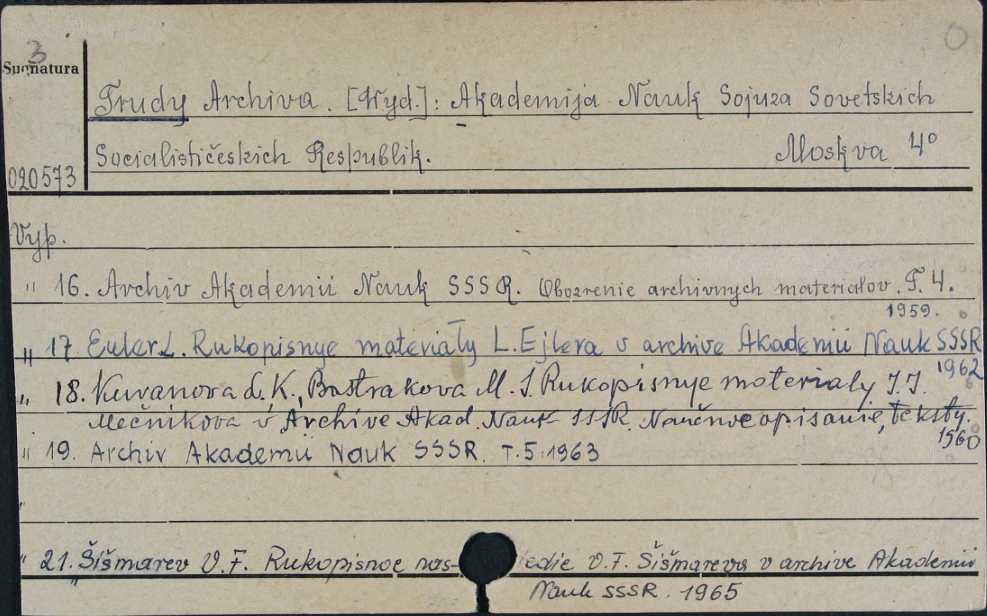 3
Sygnatura
Trudy Archiva. [Wyd.]: Akademija Nauk Sojuza Sovetskich
Socialističeskich Respublik. Moskva 4°
020573
Vyp.
" 16. Archiv Akademii Nauk SSSR. Obozrenie archivnych materialov. T. 4.
1959.
" 17 Euler L. Rukopisnye materiały L. Ejlera v archive Akademii Nauk SSSR
1962
" 18. K., Bastrakova M. S. Rukopisnye materialy I. I.
Mečnikova v Archive Akad. Nauk SSSR. Naučnoe opisanie, teksty.
1960
" 19. Archiv Akademii Nauk SSSR. T. 5. 1963
"
" 21. Šišmarev V. F. Rukopisnoe nas- ledie V. F. Šišmareva v archive Akademii
" Nauk SSSR. 1965